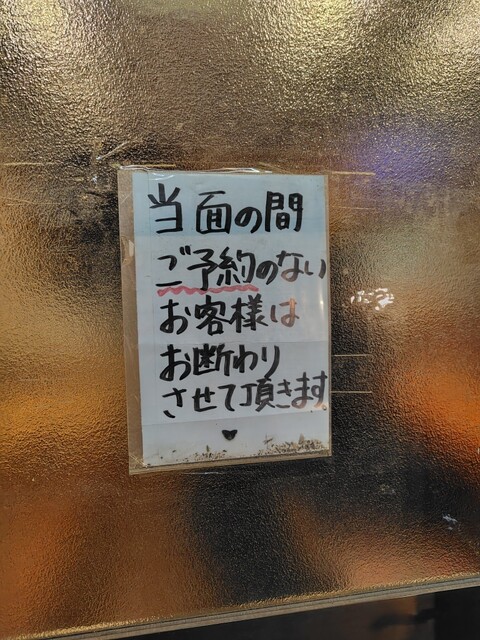 当面の間
ご予約のない
お客様は
お断わり
させて頂きます